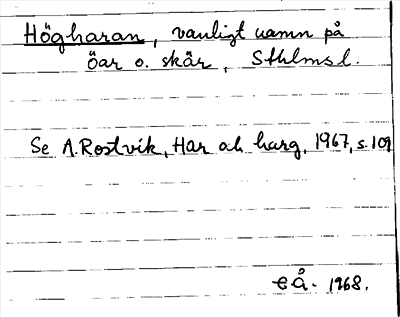 Högharan, vanligt namn på
öar o. skär, Sthlms l.
Se A. Rostvik, Har och harg, 1967, s. 109
EÅ. 1968.